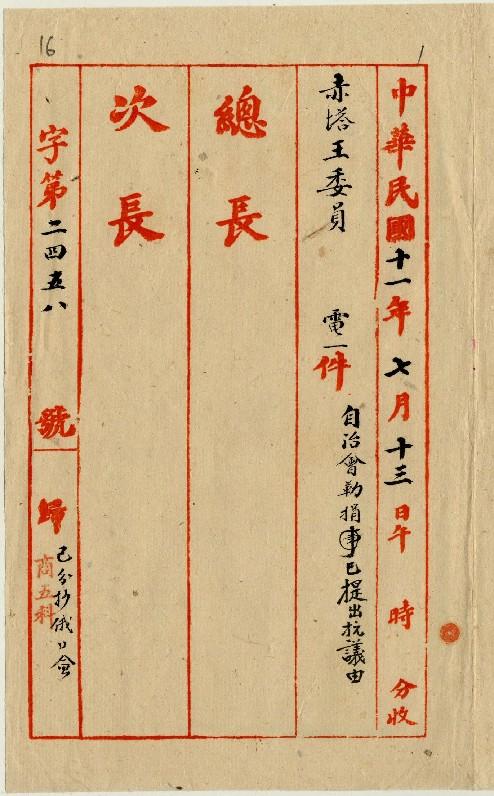 16
1
中華民國十一年七月十三日午 時 分收
赤塔王委員 電一件 自治會勒捐事已提出抗議由
總長
次長
字第二四五八號 歸
商五科
已分抄俄